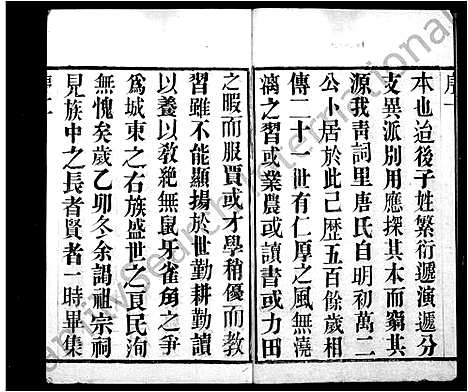 序一
本也迨後子姓繁衍遞演遞分
支異派別用應探其本而窮其
源我青詞里唐氏自明初萬二
公小居於此已歷五百餘歲相
傳二十一世有仁厚之風無澆
漓之習或業農或讀書或力田
之暇而服賈或才學稍優而教
習雖不能顯揚於世勤耕勤讀
以養以敎絶無鼠牙雀角之爭
爲城東之右族盛世之良民洵
無愧矣歲乙卯冬余謁祖宗祠
見族中之長者賢者一時畢集
序二